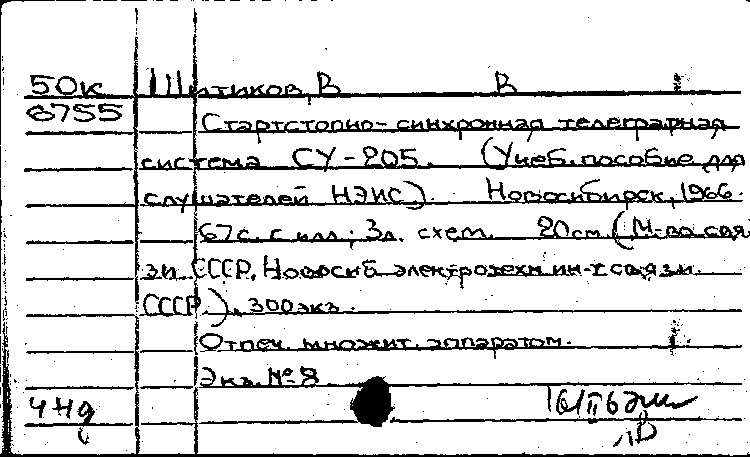 50к Шитиков, В В
6755
Стартстопно-синхронная телеграфная
система СУ-205. (Учеб. пособие для
слушателей НЭИС). Новосибирск, 1966.
67с. с илл.; 3л. схем. 20см (М-во свя-
зи СССР. Новосиб. электротехн. ин-т связи
СССР). 300экз.
Отпеч. множит. аппаратом.
Экз. №8